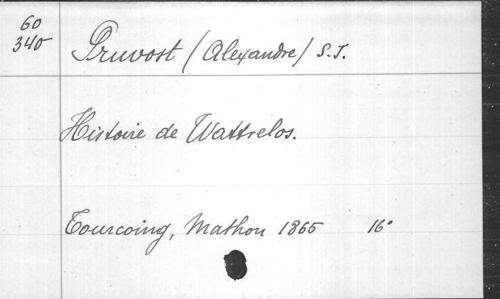 60
340
Pruvost (Alexandre) S.J.
Histoire de Wattrelos.
Tourcoing, Mathon 1865 16°